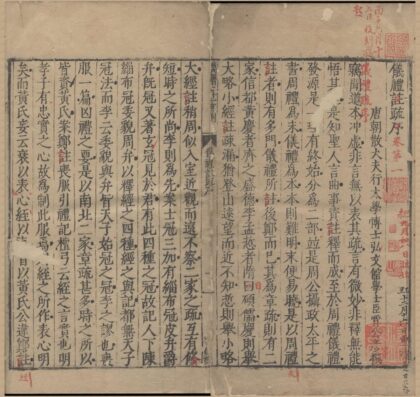 儀禮註疏序
唐朝散大夫行大學博士弘文館學士臣賈公彥撰
竊聞道本冲虛非言無以表其疏言有微妙非釋無能
悟其理是知聖人言曲事資註釋而成至於周禮儀禮
發源是一理有終始分為二部並是周公攝政太平之
書周禮為末儀禮為本本則難明末便易曉是以周禮
註者則有多門儀禮所註後鄭而已其為章疏則有二
家信都黃慶者齊之盛德李孟悊者隋日碩儒慶則舉
大略小經註疏漏猶登山遠望而近不知悊則舉小略
大經註稍周似入室近觀而遠不察二家之疏互有修
短時之所尚李則為先案士冠三加有緇布冠皮弁爵
弁既冠又著玄冠見於君有此四種之冠故記人下陳
緇布冠委貌周弁以釋經之四種經之與記都無天子
冠法而李云委貌與弁皆天子始冠之冠李之謬也喪
服一篇凶禮之要是以南北二家章疏甚多時之所以
皆資黃氏案鄭註喪服引禮記檀弓云絰之言實也明
孝子有忠實之心故為制此服焉則絰之所作表心明
矣而黃氏妄云衰以表心絰以表首以黃氏公違鄭註